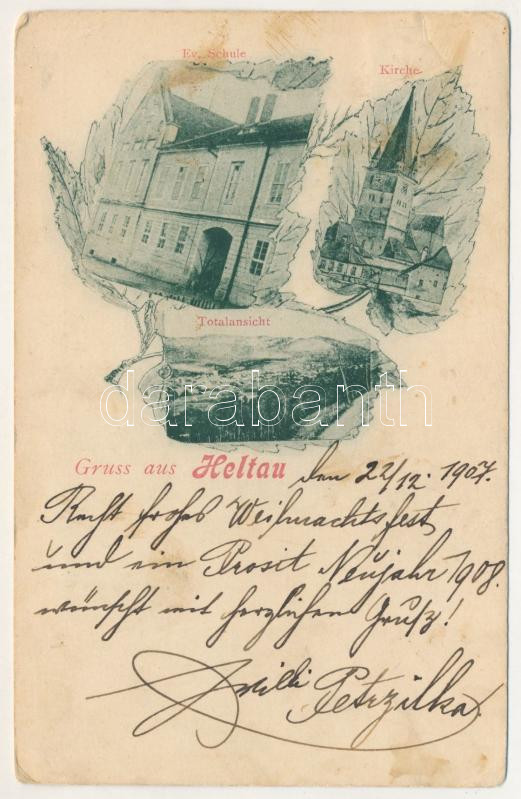 Ev. Schule
Kirche
Totalansicht
darabanth
Gruss aus Heltau
den 22/12. 1907.
Recht frohes Weihnachtsfest
und ein Prosit Neujahr 1908.
wünscht mit herzlichen Gruß!
Petrzilka